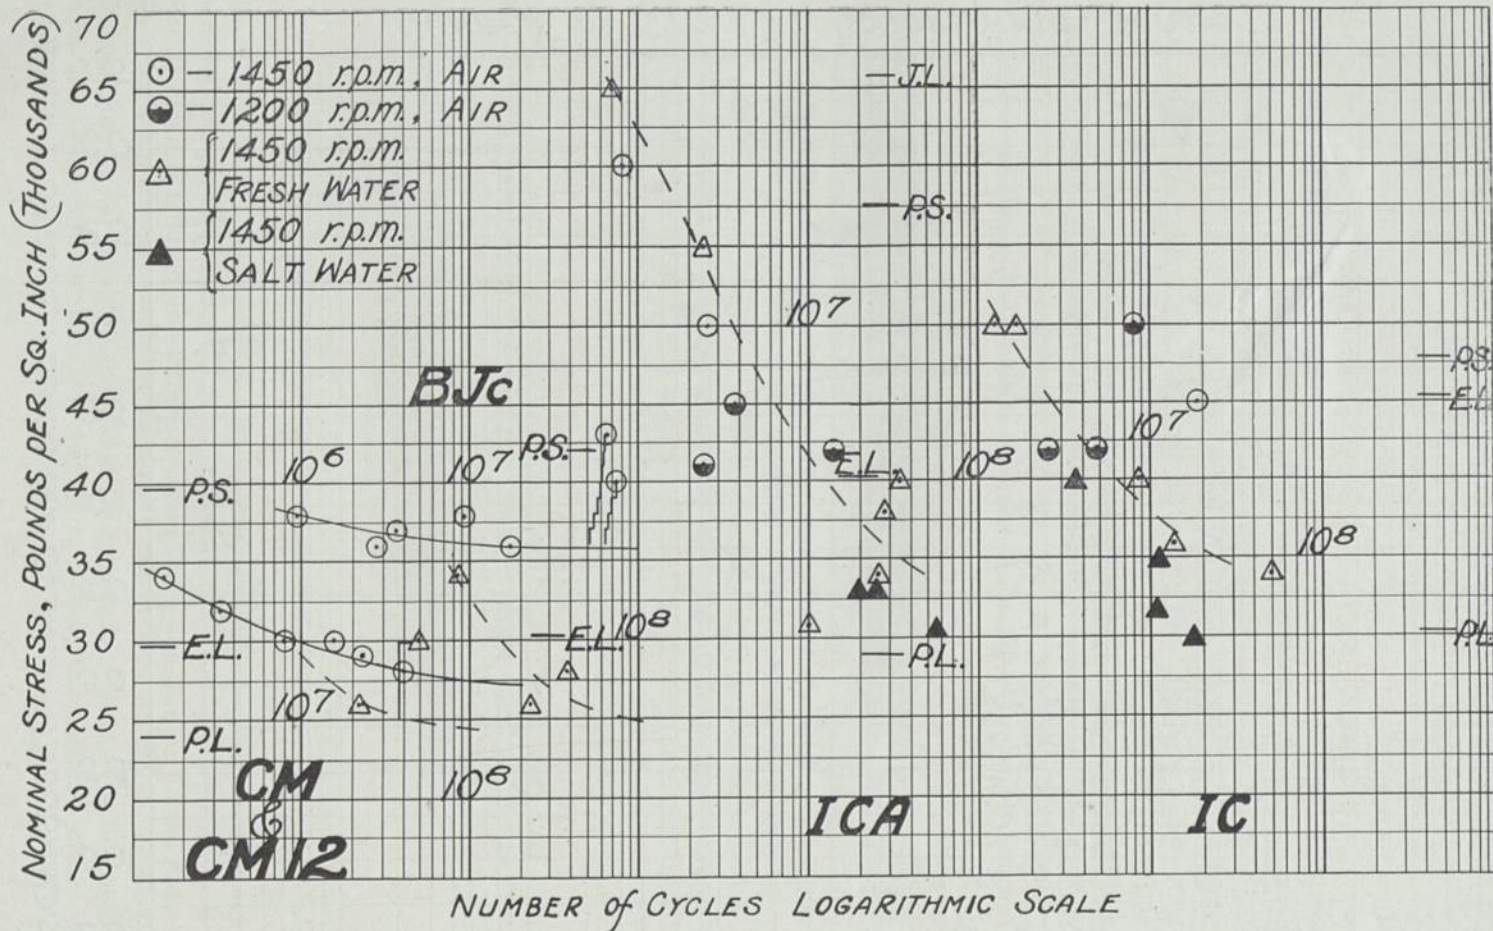 NOMINAL STRESS, POUNDS PER SQ.INCH (THOUSANDS)
70
65
60
55
50
45
40
35
30
25
20
15
— 1450 r.p.m., AIR
— 1200 r.p.m., AIR
1450 r.p.m.
FRESH WATER
1450 r.p.m.
SALT WATER
—J.L.
—P.S.
10⁷
BJc
P.S.—
—P.S.
—E.L.
10⁶
10⁷
—P.S.
E.L.
10⁸
10⁷
10⁸
—E.L.
—E.L.
10⁸
—P.L.
—P.L.
10⁷
—P.L.
10⁸
CM
&
CM12
ICA
IC
NUMBER of CYCLES LOGARITHMIC SCALE